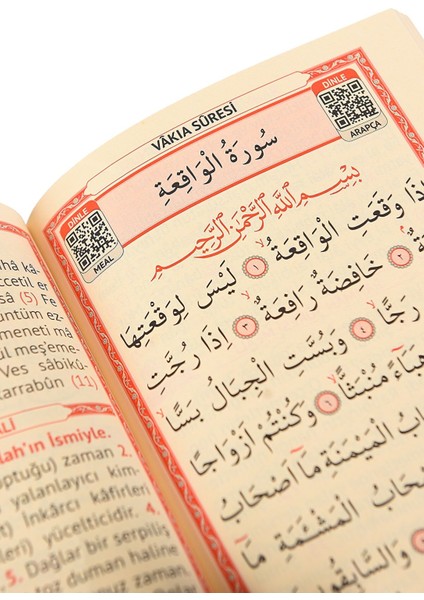 VÂKIA SÛRESİ
DİNLE
ARAPÇA
DİNLE
MEAL
سُورَةُ الْوَاقِعَةِ
بِسْمِ اللهِ الرَّحْمٰنِ الرَّحِيمِ
اِذَا وَقَعَتِ الْوَاقِعَةُۙ ﴿١﴾ لَيْسَ لِوَقْعَتِهَا
﴿٢﴾ خَافِضَةٌ رَافِعَةٌۙ ﴿٣﴾ اِذَا رُجَّتِ
رَجًّاۙ ﴿٤﴾ وَبُسَّتِ الْجِبَالُ بَسًّاۙ
هَبَٓاءً مُنْبَثًّاۙ ﴿٦﴾ وَكُنْتُمْ اَزْوَاجًا
الْمَيْمَنَةِ مَٓا اَصْحَابُ
الْمَشْـَٔمَةِ مَٓا
وَالسَّابِقُونَ
hâ kâ-
ccetil er
sâ (5) Fe
untüm ez-
meneti mâ
ül meş'eme-
Ves sâbikû-
karrabûn (11)
ALİ
lah'ın İsmiyle.
zaman 2.
yalanlayıcı kim-
İnkârcı kâfirleri
yücelticidir. 4.
5. Dağlar bir serpiliş
toz duman haline
zaman,